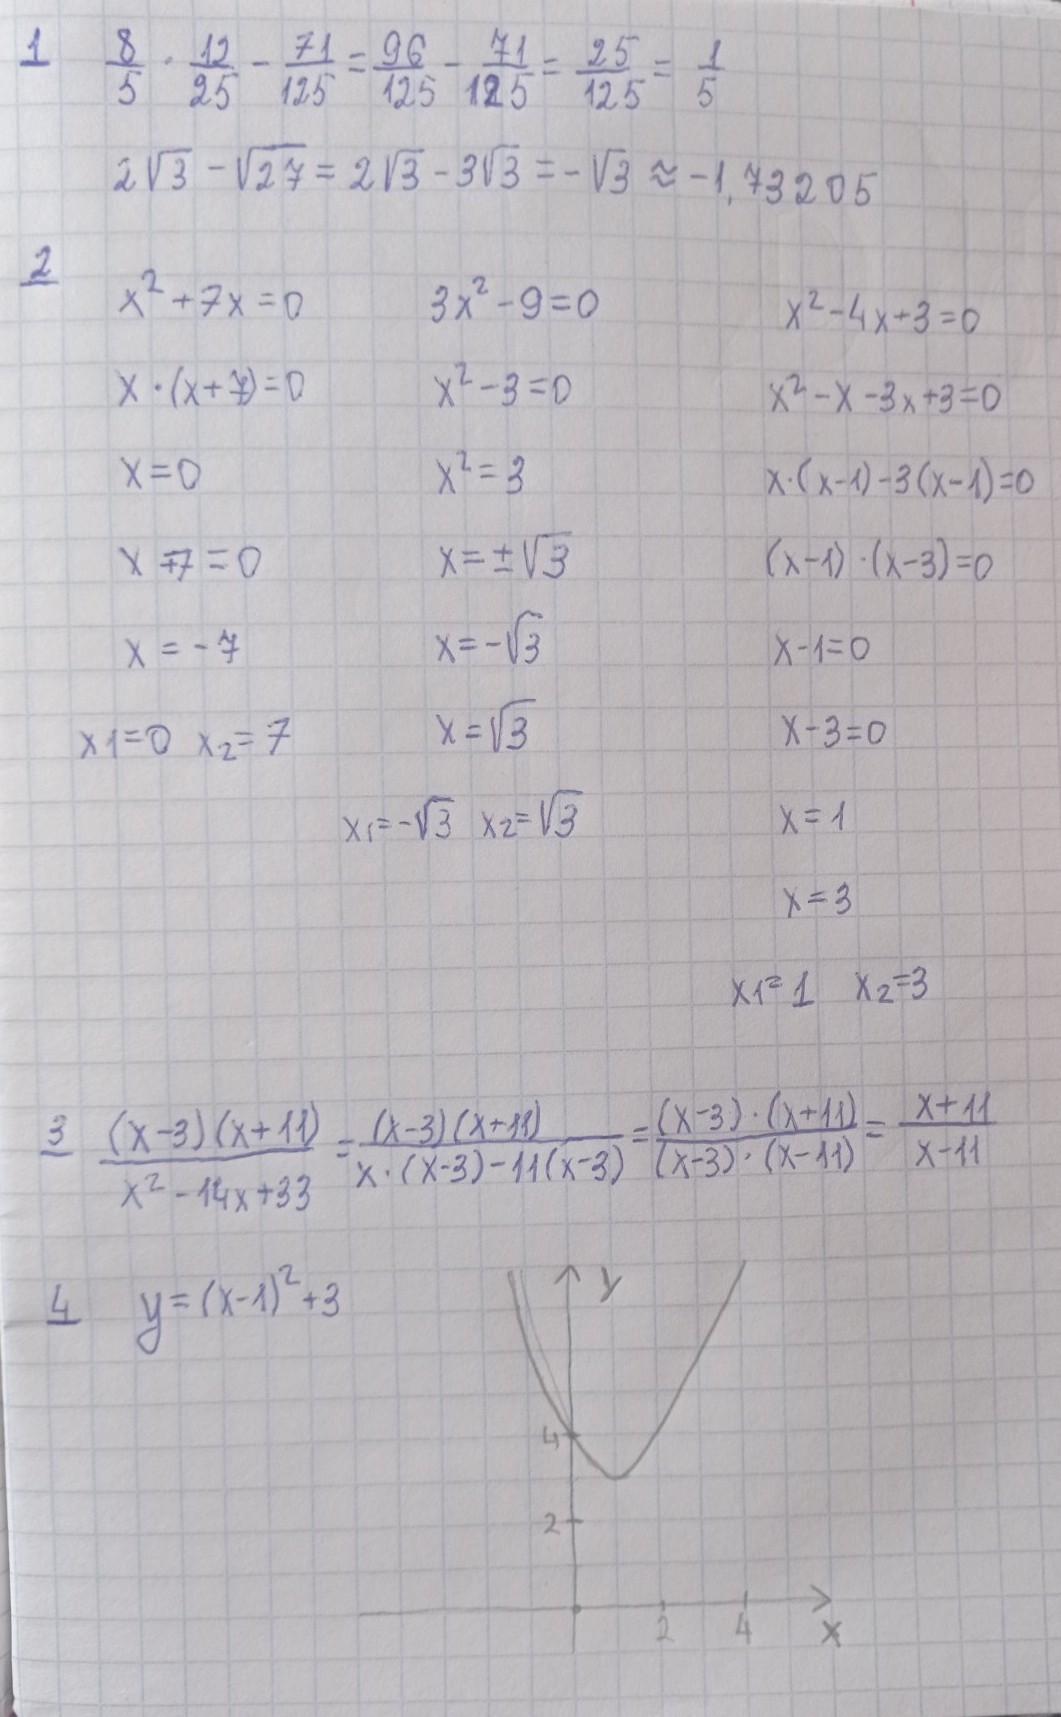 1 8/5 · 12/25 - 71/125 = 96/125 - 71/125 = 25/125 = 1/5
2√3 - √27 = 2√3 - 3√3 = -√3 ≈ -1,73205
2
x² + 7x = 0 3x² - 9 = 0 x² - 4x + 3 = 0
x · (x + 7) = 0 x² - 3 = 0 x² - x - 3x + 3 = 0
x = 0 x² = 3 x · (x - 1) - 3(x - 1) = 0
x + 7 = 0 x = ±√3 (x - 1) · (x - 3) = 0
x = -7 x = -√3 x - 1 = 0
x1 = 0 x2 = 7 x = √3 x - 3 = 0
x1 = -√3 x2 = √3 x = 1
x = 3
x1 = 1 x2 = 3
3 (x-3)(x+11)/(x² - 14x + 33) = (x-3)(x+11)/(x · (x-3) - 11(x-3)) = (x-3) · (x+11)/((x-3) · (x-11)) = (x+11)/(x-11)
4 y = (x-1)² + 3 y
4
2
2 4 x